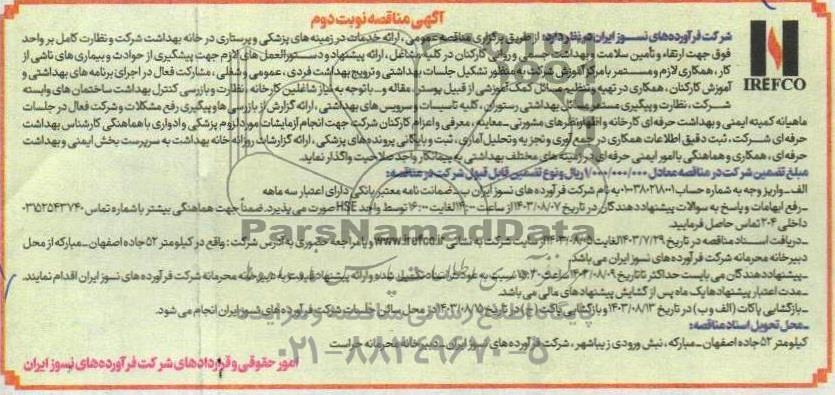 آگهی مناقصه نوبت دوم
IREFCO
شرکت فرآورده‌های نسوز ایران در نظر دارد: از طریق برگزاری مناقصه عمومی، ارائه خدمات در زمینه های پزشکی و پرستاری در خانه بهداشت شرکت و نظارت کامل بر واحد
فوق جهت ارتقاء و تأمین سلامت و بهداشت جسمی و روانی کارکنان در کلیه مشاغل، ارائه پیشنهاد و دستورالعمل های لازم جهت پیشگیری از حوادث و بیماری های ناشی از
کار، همکاری لازم و مستمر با مرکز آموزش شرکت به منظور تشکیل جلسات بهداشتی و ترویج بهداشت فردی، عمومی و شغلی، مشارکت فعال در اجرای برنامه های بهداشتی و
آموزش کارکنان، همکاری در تهیه و تنظیم مسائل کمک آموزشی از قبیل پوستر، مقاله و... با توجه به نیاز شاغلین کارخانه، نظارت و بازرسی کنترل بهداشت ساختمان های وابسته
شرکت، نظارت و پیگیری مستمر مسائل بهداشتی رستوران، کلیه تاسیسات و سرویس های بهداشتی، ارائه گزارش از بازرسی ها و پیگیری رفع مشکلات و شرکت فعال در جلسات
ماهیانه کمیته ایمنی و بهداشت حرفه ای کارخانه و اظهارنظرهای مشورتی - معاینه، معرفی و اعزام کارکنان شرکت جهت انجام آزمایشات مورد لزوم پزشکی و ادواری با هماهنگی کارشناس بهداشت
حرفه ای شرکت، ثبت دقیق اطلاعات همکاری در جمع آوری و تجزیه و تحلیل آماری، ثبت و بایگانی پرونده های پزشکی، ارائه گزارشات روزانه خانه بهداشت به سرپرست بخش ایمنی و بهداشت
حرفه ای، همکاری و هماهنگی با امور ایمنی حرفه ای در زمینه های مختلف بهداشتی به پیمانکار واجد صلاحیت واگذار نماید.
مبلغ تضمین شرکت در مناقصه معادل ۱/۰۰۰/۰۰۰/۰۰۰ ریال و نوع تضمین قابل قبول شرکت در مناقصه:
الف - واریز وجه به شماره حساب ۰۱۰۳۸۰۲۱۸۰۰۱ به نام شرکت فرآورده های نسوز ایران ب - ضمانت نامه معتبر بانکی دارای اعتبار سه ماهه
- رفع ابهامات و پاسخ به سوالات پیشنهاد دهندگان در تاریخ ۱۴۰۳/۰۸/۰۷ از ساعت ۱۴:۰۰ لغایت ۱۶:۰۰ توسط واحد HSE صورت می پذیرد. ضمناً جهت هماهنگی بیشتر با شماره تماس ۰۳۱۵۲۵۴۳۷۴۰
داخلی ۲۰۴ تماس حاصل فرمایید.
- دریافت اسناد مناقصه در تاریخ ۱۴۰۳/۷/۲۹ لغایت ۱۴۰۳/۰۸/۰۵ از سایت شرکت به نشانی www.irefco.ir و یا مراجعه حضوری به آدرس شرکت: واقع در کیلومتر ۵۲ جاده اصفهان - مبارکه از محل
دبیرخانه محرمانه شرکت فرآورده های نسوز ایران می باشد.
- پیشنهاد دهندگان می بایست حداکثر تا تاریخ ۱۴۰۳/۰۸/۰۹ ساعت ۱۵:۳۰ نسبت به عودت اسناد تکمیل شده و ارائه پیشنهاد قیمت به دبیرخانه محرمانه شرکت فرآورده های نسوز ایران اقدام نمایند.
- مدت اعتبار پیشنهادها یک ماه پس از گشایش پیشنهادهای مالی می باشد.
- بازگشایی پاکات (الف و ب) در تاریخ ۱۴۰۳/۰۸/۱۳ و بازگشایی پاکت (ج) در تاریخ ۱۴۰۳/۰۸/۱۵ در محل سالن جلسات شرکت فرآورده های نسوز ایران انجام می شود.
- محل تحویل اسناد مناقصه:
کیلومتر ۵۲ جاده اصفهان - مبارکه، نبش ورودی زیباشهر، شرکت فرآورده های نسوز ایران - دبیرخانه محرمانه حراست
امور حقوقی و قراردادهای شرکت فرآورده های نسوز ایران
ParsNamadData
پایگاه اطلاع رسانی مناقصه و مزایده
۰۲۱-۸۸۳۴۹۶۷۰-۵